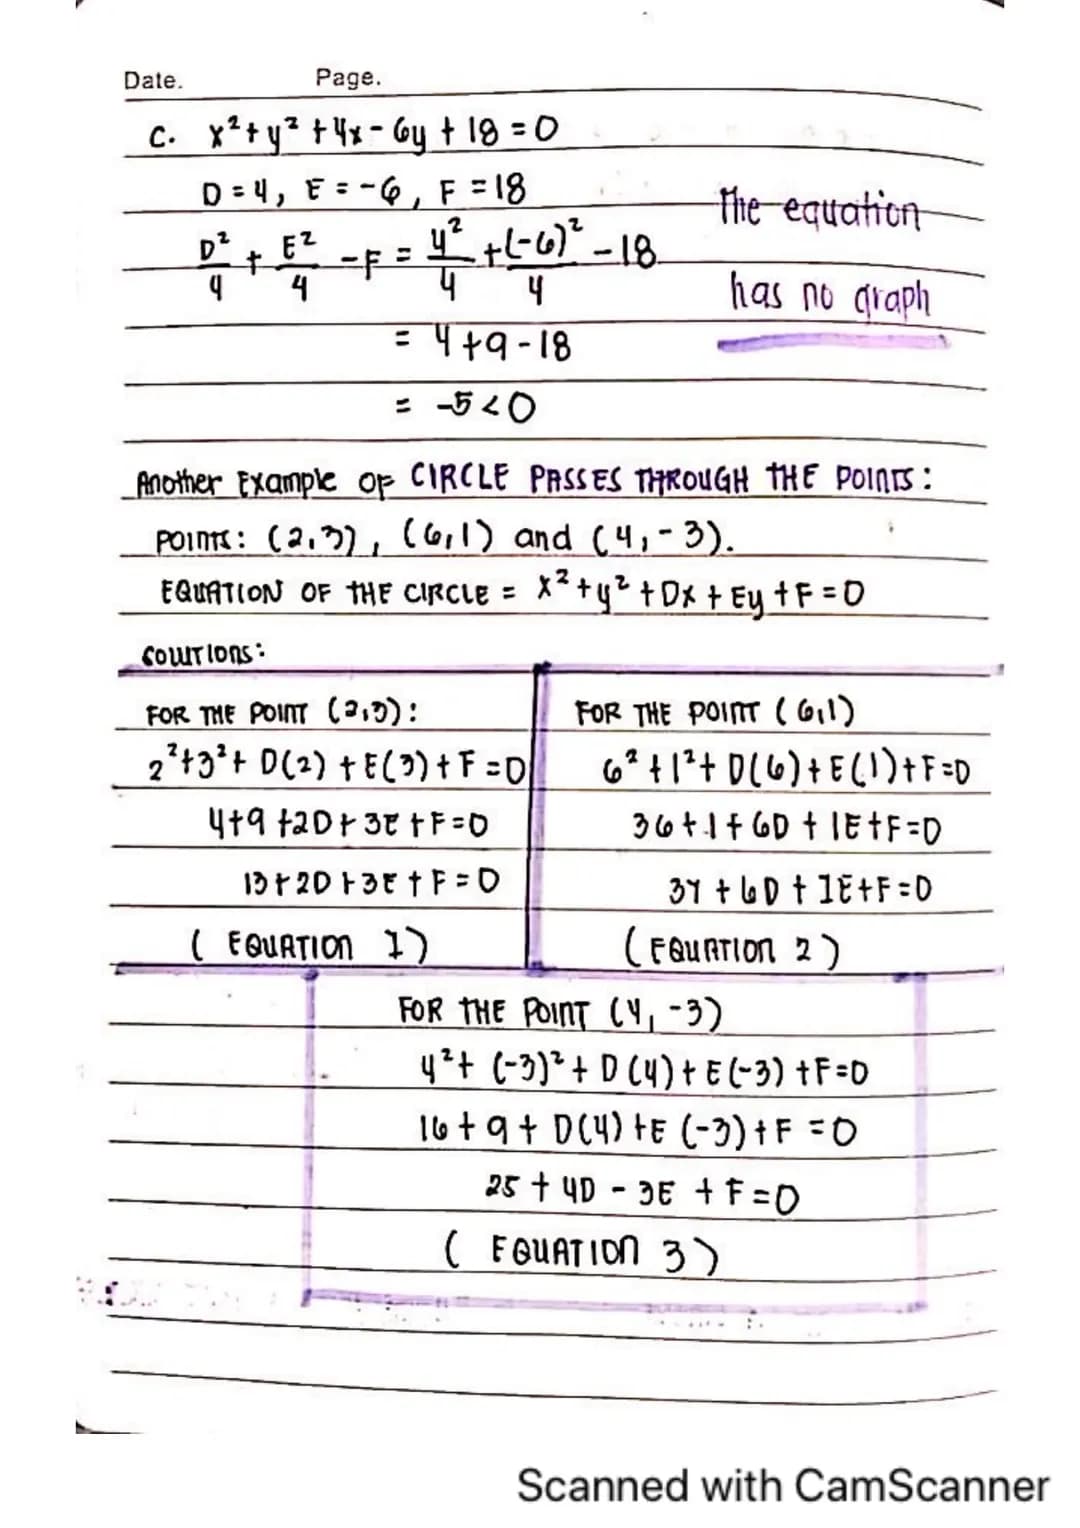 Date. Page.
C. x²+y²+4x-6y+18=0
D=4, E=-6, F=18
D²/4 + E²/4 -F = 4²/4 +(-6)²/4 -18
The equation
has no graph
= 4+9-18
= -5<0
Another Example OF CIRCLE PASSES THROUGH THE POINTS:
POINTS: (2,3), (6,1) and (4,-3).
EQUATION OF THE CIRCLE = x²+y²+Dx+Ey+F=0
SOLUTIONS:
FOR THE POINT (2,3):
2²+3²+D(2)+E(3)+F=0
4+9+2D+3E+F=0
13+2D+3E+F=0
(EQUATION 1)
FOR THE POINT (6,1)
6²+1²+D(6)+E(1)+F=0
36+1+6D+1E+F=0
37+6D+1E+F=0
(EQUATION 2)
FOR THE POINT (4,-3)
4²+(-3)²+D(4)+E(-3)+F=0
16+9+D(4)+E(-3)+F=0
25+4D-3E+F=0
(EQUATION 3)
Scanned with CamScanner